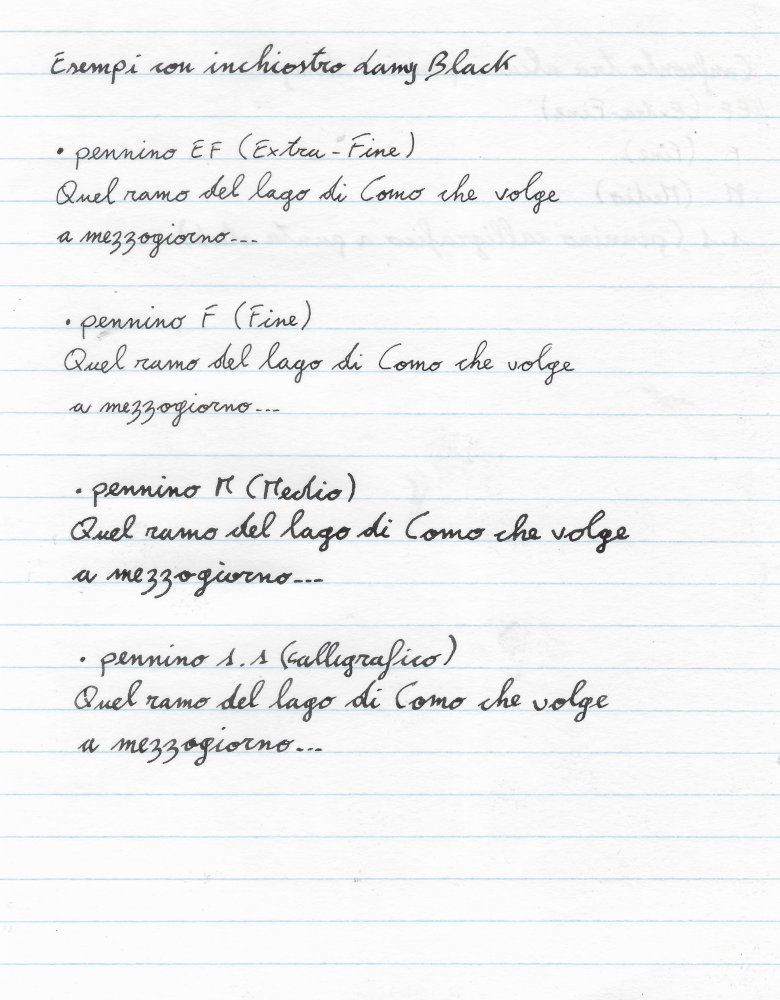 Esempi con inchiostro Lamy Black
• pennino EF (Extra-Fine)
Quel ramo del lago di Como che volge
a mezzogiorno...
• pennino F (Fine)
Quel ramo del lago di Como che volge
a mezzogiorno...
• pennino M (Medio)
Quel ramo del lago di Como che volge
a mezzogiorno...
• pennino 1.1 (Calligrafico)
Quel ramo del lago di Como che volge
a mezzogiorno...